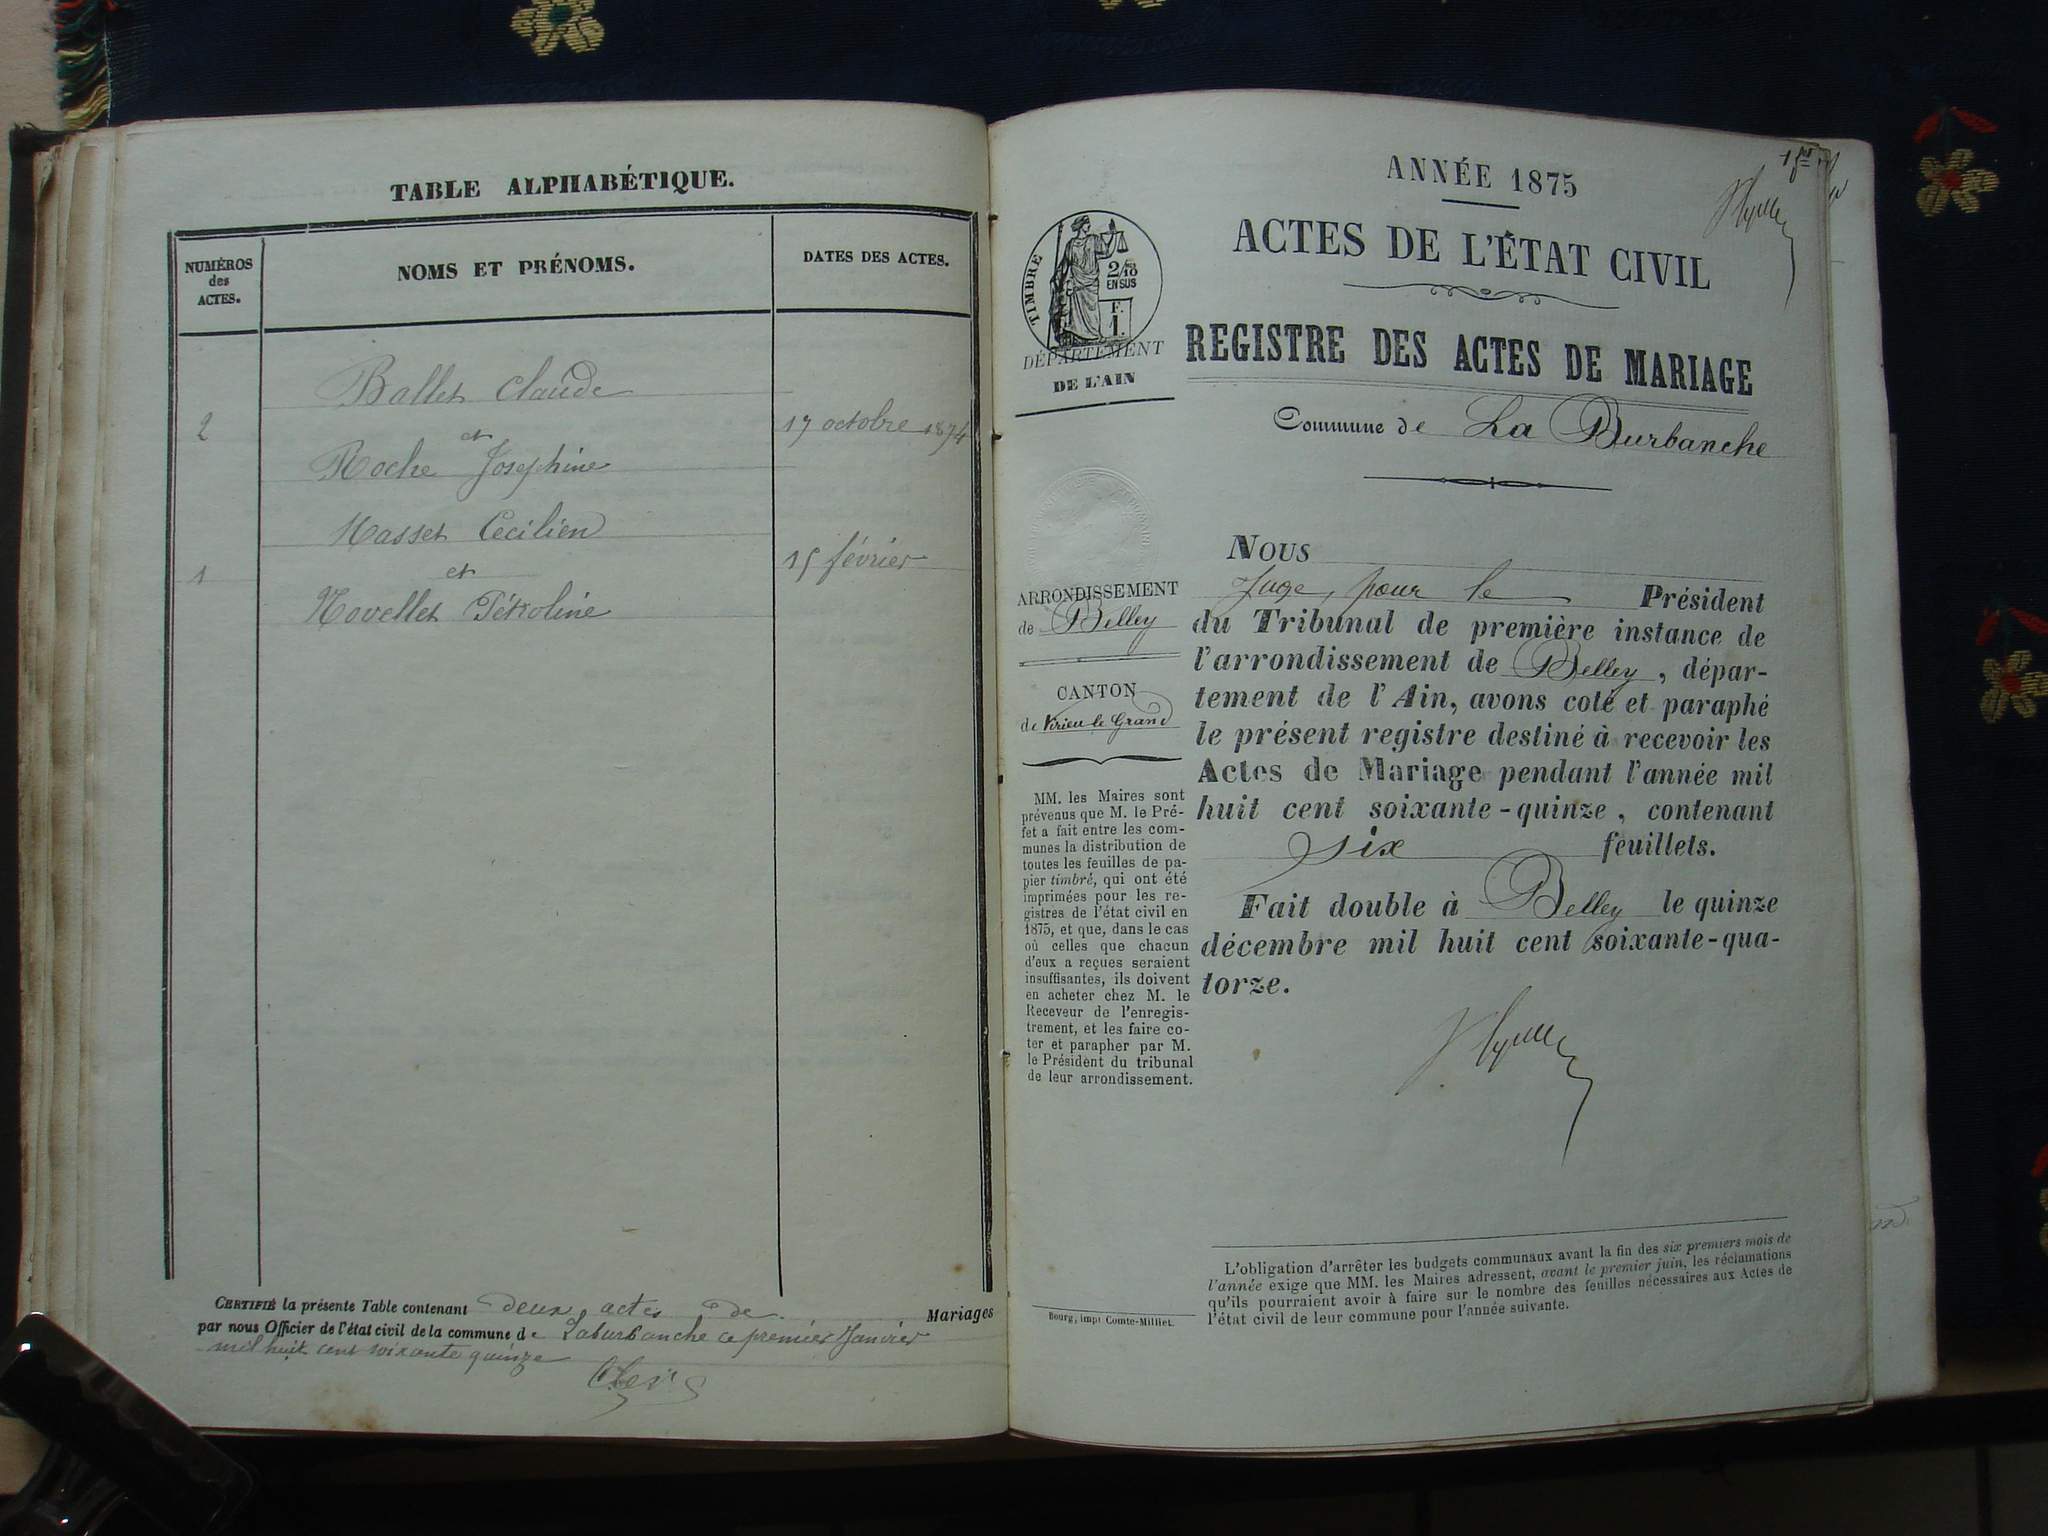 TABLE ALPHABÉTIQUE.
NUMÉROS
des
ACTES.
NOMS ET PRÉNOMS.
DATES DES ACTES.
Ballet Claude
2
et
17 octobre 1874
Roche Josephine
Masset Cecilien
1
et
15 février
Novellet Pétroline
CERTIFIÉ la présente Table contenant deux actes de Mariages
par nous Officier de l'état civil de la commune de Laburbanche ce premier Janvier
mil huit cent soixante quinze
ANNÉE 1875
ACTES DE L'ÉTAT CIVIL
TIMBRE
2/10
EN SUS
F.
1.
DÉPARTEMENT
DE L'AIN
REGISTRE DES ACTES DE MARIAGE
Commune de La Burbanche
ARRONDISSEMENT
de Belley
CANTON
de Virieu le Grand
MM. les Maires sont
prévenus que M. le Pré-
fet a fait entre les com-
munes la distribution de
toutes les feuilles de pa-
pier timbré, qui ont été
imprimées pour les re-
gistres de l'état civil en
1875, et que, dans le cas
où celles que chacun
d'eux a reçues seraient
insuffisantes, ils doivent
en acheter chez M. le
Receveur de l'enregis-
trement, et les faire co-
ter et parapher par M.
le Président du tribunal
de leur arrondissement.
NOUS
Juge, pour le Président
du Tribunal de première instance de
l'arrondissement de Belley, dépar-
tement de l'Ain, avons coté et paraphé
le présent registre destiné à recevoir les
Actes de Mariage pendant l'année mil
huit cent soixante-quinze, contenant
six feuillets.
Fait double à Belley le quinze
décembre mil huit cent soixante-qua-
torze.
L'obligation d'arrêter les budgets communaux avant la fin des six premiers mois de
l'année exige que MM. les Maires adressent, avant le premier juin, les réclamations
qu'ils pourraient avoir à faire sur le nombre des feuilles nécessaires aux Actes de
l'état civil de leur commune pour l'année suivante.
Bourg, impr Comte-Milliet.